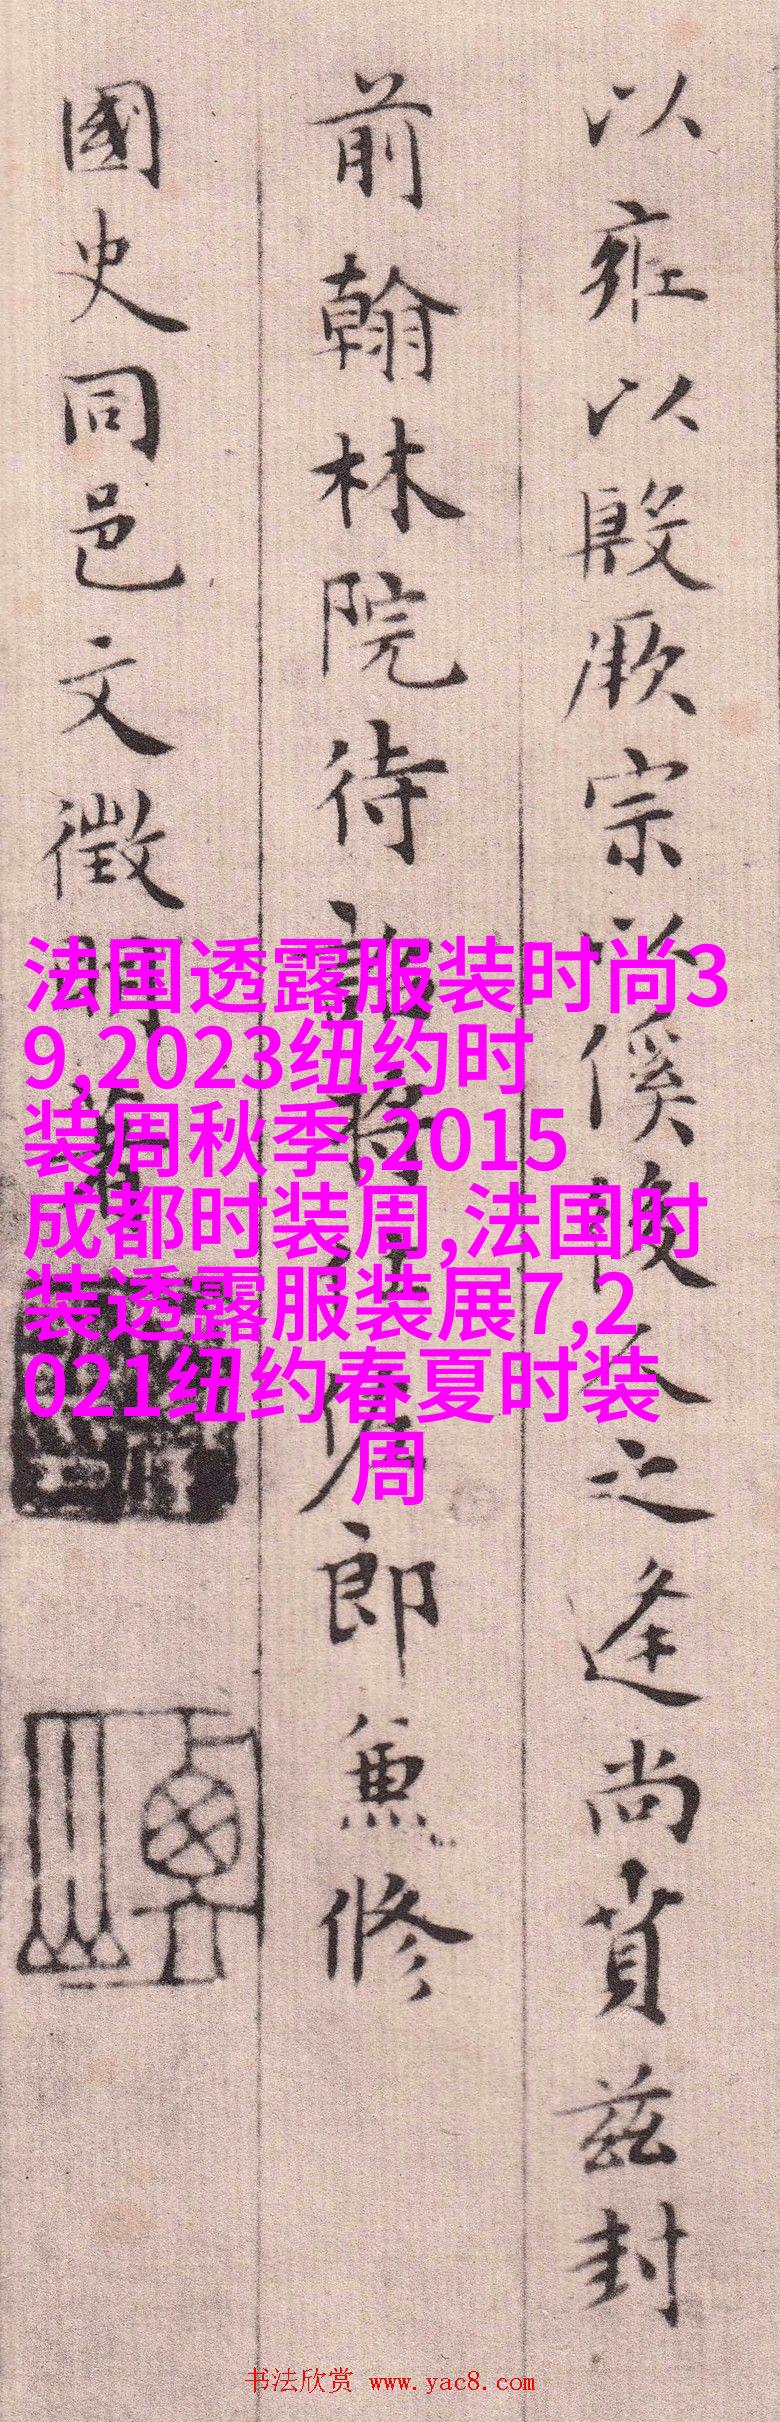 以雍以殷厥宗以傒後人之逢尚賁茲封
前翰林院待詔將仕佐郎兼修
國史同邑文徵明著
法国透露服装时尚3
9,2023纽约时
装周秋季,2015
成都时装周,法国时
装透露服装展7,2
021纽约春夏时装
周
书法欣赏 www.yac8.com